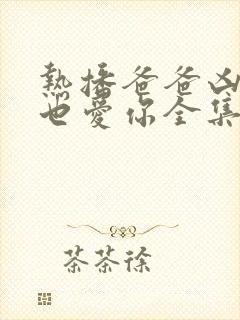 热播爸爸凶
也爱你全集
茶茶徐